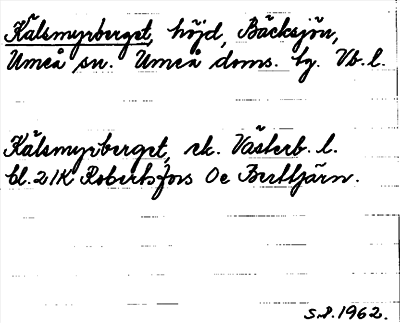 Kälsmyrberget, höjd, Bäcksjön,
Umeå sn. Umeå doms. hg. Vb. l.
Kälsmyrberget, rk. Västerb. l.
bl. 21K Robertsfors 0e Bertljärn.
S.P. 1962.